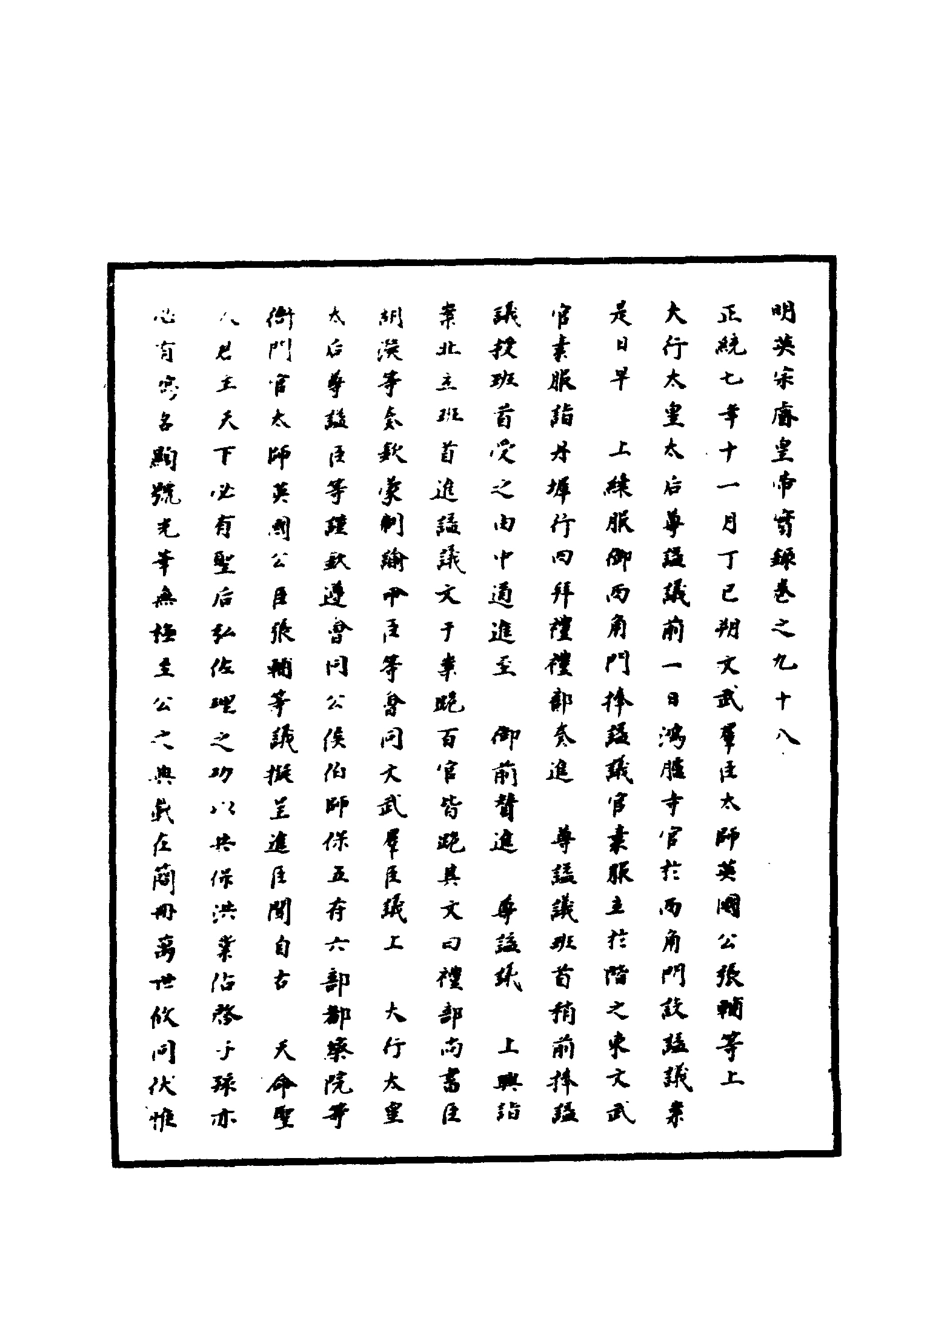 明英宗睿皇帝實錄卷之九十八
正統七年十一月丁巳朔文武羣臣太師英國公張輔等上
大行太皇太后尊諡議前一日鴻臚寺官於西角門設諡議案
是日早　上縗服御西角門捧諡議官素服立於階之東文武
官素服詣丹墀行四拜禮禮部奏進　尊諡議班首稍前捧諡
議授班首受之由中道進至　御前贊進　尊諡議　上興詣
案北立班首進諡議文于案跪百官皆跪其文曰禮部尚書臣
胡濙等奏欽蒙制諭命臣等會同文武羣臣議上　大行太皇
太后尊諡臣等謹欽遵會同公侯伯師保五府六部都察院等
衙門官太師英國公臣張輔等議擬呈進臣聞自古　天命聖
人君主天下必有聖后弘佐理之功以共保洪業佑啓子孫亦
必有鴻名顯號光華無極至公之典載在簡冊萬世攸同伏惟